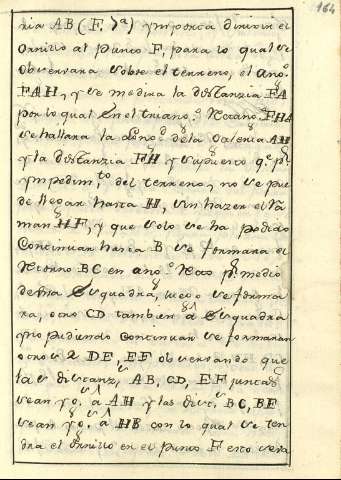 164
ria AB (F. 7ª) y importa dirixir el
Ornillo al punto F, para lo qual se
observara sobre el terreno, el ang.º
FAH, y se medira la distanzia FA
por lo qual en el triang.º Rectang.º FHA
se hallara la Long.d de la Galeria AH
y la distanzia FH y supuesto q.e p.r
ympedim.to del terreno, no se pue
de llegar hasta H, sin hazer el Ra
man HF, y que solo se ha podido
Continuar hasta B se formara el
Retorno BC en ang.º Recto p.r medio
de una Esquadra, luego se forma
ra, otro CD tambien a Esquadra
y no pudiendo Continuar se formaran
otros 2 DE, EF observando que
las distanz.s AB, CD, EF juntas
sean yg.s a AH y las dist.s BC, DE
sean yg.s a HB con lo qual se ten
dra el Ornillo en el punto F esto sera